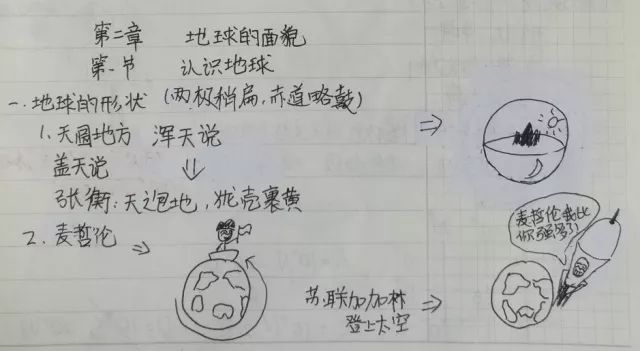 第二章 地球的面貌
第一节 认识地球
一、地球的形状 (两极稍扁,赤道略鼓)
1、天圆地方 浑天说
盖天说
张衡:天之包地,犹壳裹黄
2、麦哲伦
麦哲伦我比你强多了
苏联加加林
登上太空